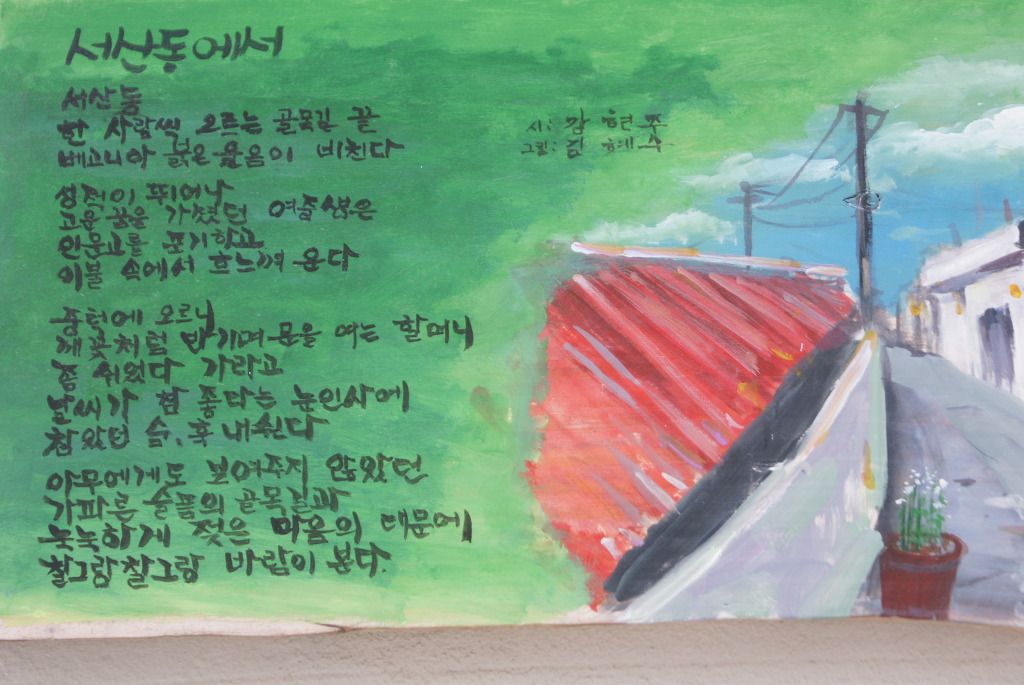 서산동에서
시: 김현주
그림: 김혜수
서산동
한 사람씩 오르는 골목길 끝
베고니아 붉은 웃음이 비친다
성적이 뛰어나
고운 꿈을 가졌던 여중생은
인문고를 포기하고
이불 속에서 흐느껴 운다
중턱에 오르니
깨꽃처럼 반기며 문을 여는 할머니
좀 쉬었다 가라고
날씨가 참 좋다는 눈인사에
참았던 숨, 후 내쉰다
아무에게도 보여주지 않았던
가파른 슬픔의 골목길과
눅눅하게 젖은 마음의 대문에
찰그랑찰그랑 바람이 분다.